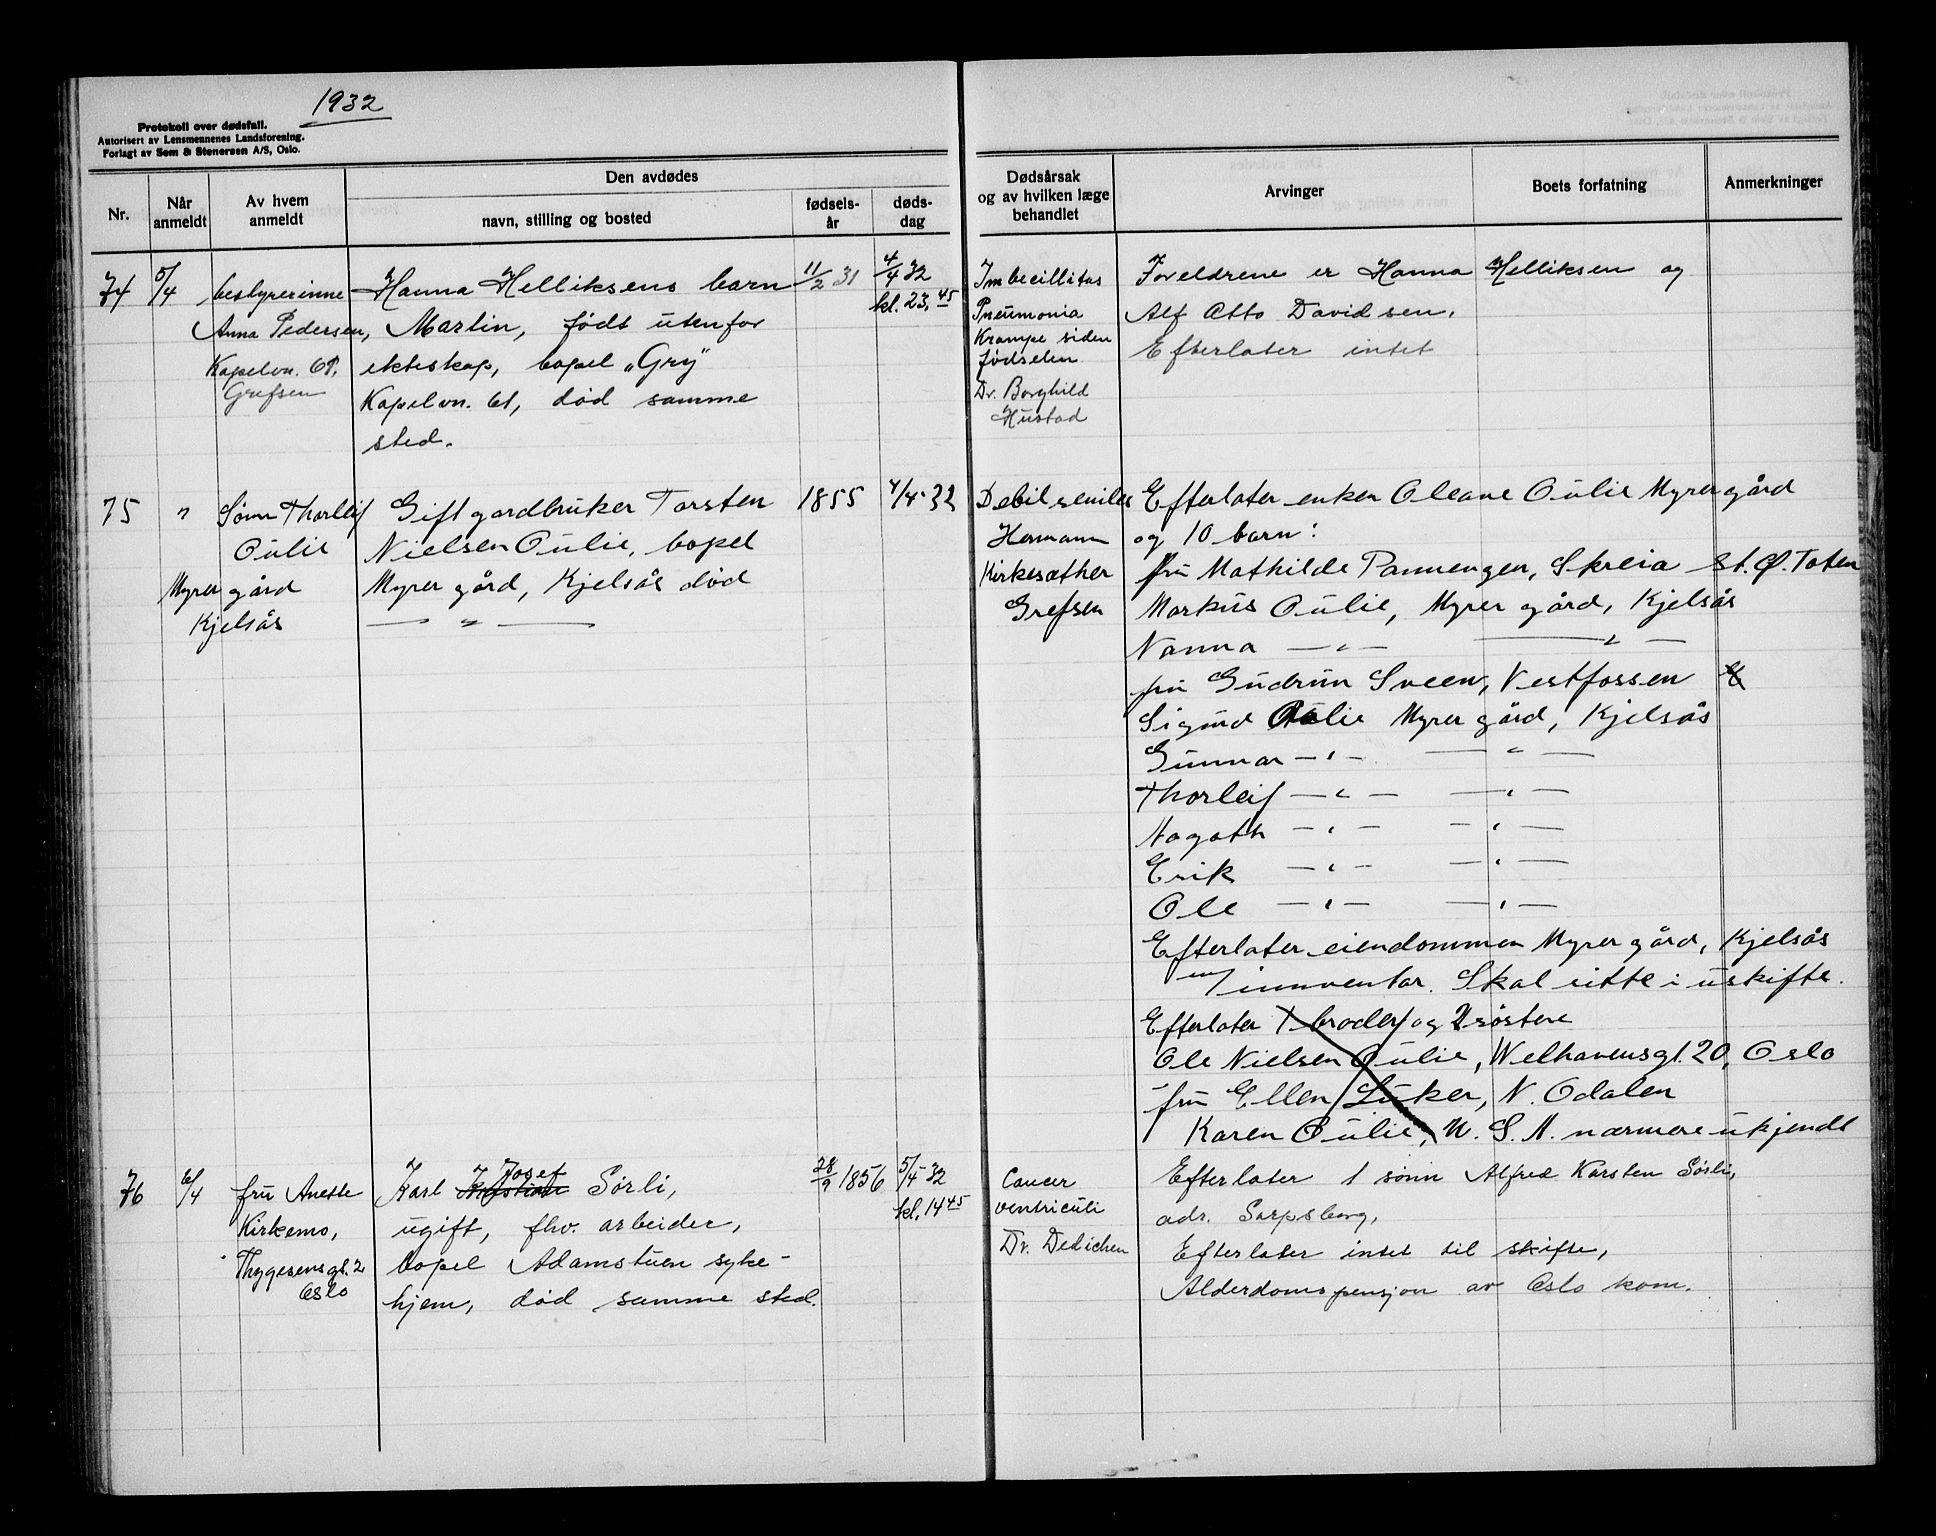 1932
Protokoll over dødsfall.
Autorisert av Lensmennenes Landsforening.
Forlagt av Sem & Stenersen A/S, Oslo.
Nr.
Når anmeldt
Av hvem anmeldt
Den avdødes
navn, stilling og bosted
fødsels-år
døds-dag
Dødsårsak og av hvilken læge behandlet
Arvinger
Boets forfatning
Anmerkninger
74
5/4
bestyrerinne
Anna Pedersen,
Kapelvn. 61,
Grefsen
Hanna Helliksens barn
Martin, født utenfor
ekteskap, bopel „Gry"
Kapelvn. 61, død samme
sted.
11/2 31
4/4 32
kl. 23,45
Imbecillitas
Pneumonia
Krampe siden
fødselen
Dr. Borghild
Hustad
Foreldrene er Hanna Helliksen og
Alf Otto Davidsen.
Efterlater intet
75
"
Sønn Thorleif
Oulie
Myrer gård
Kjelsås
Gift gardbruker Torsten
Nielsen Oulie, bopel
Myrer gård, Kjelsås død
— " —
1855
4/4-32
Debil seniles
Hermann
Kirkesæther
Grefsen
Efterlater enken Oleane Oulie Myrer gård
og 10 barn:
fru Mathilde Pannengen, Skreia st. Ø. Toten
Markus Oulie, Myrer gård, Kjelsås
Nanna — " — — " —
fru Gudrun Sveen, Vestfossen
Sigurd Oulie Myrer gård, Kjelsås
Gunnar — " — — " —
Thorleif — " — — " —
Nagoth — " — — " —
Erik — " — — " —
Ole — " — — " —
Efterlater eiendommen Myrer gård, Kjelsås
m/ innventar. Skal sitte i uskifte.
Efterlater 1 broder og 2 søstere
Ole Nielsen Oulie, Welhavensgt. 20, Oslo
fru Ellen Luker, N. Odalen
Karen Oulie, U. S. A. nærmere ukjendt
76
6/4
fru Anette
Kirkemo,
Thygesensgt. 2
Oslo
Karl Kristian Josef Sørli,
ugift, fhv. arbeider,
bopel Adamstuen syke-
hjem, død samme sted.
28/9 1856
5/4-32
kl. 14 45
Cancer
ventriculi
Dr. Dedichen
Efterlater 1 sønn Alfred Karsten Sørli,
adr. Sarpsborg.
Efterlater intet til skifte,
Alderdomspensjon av Oslo kom.